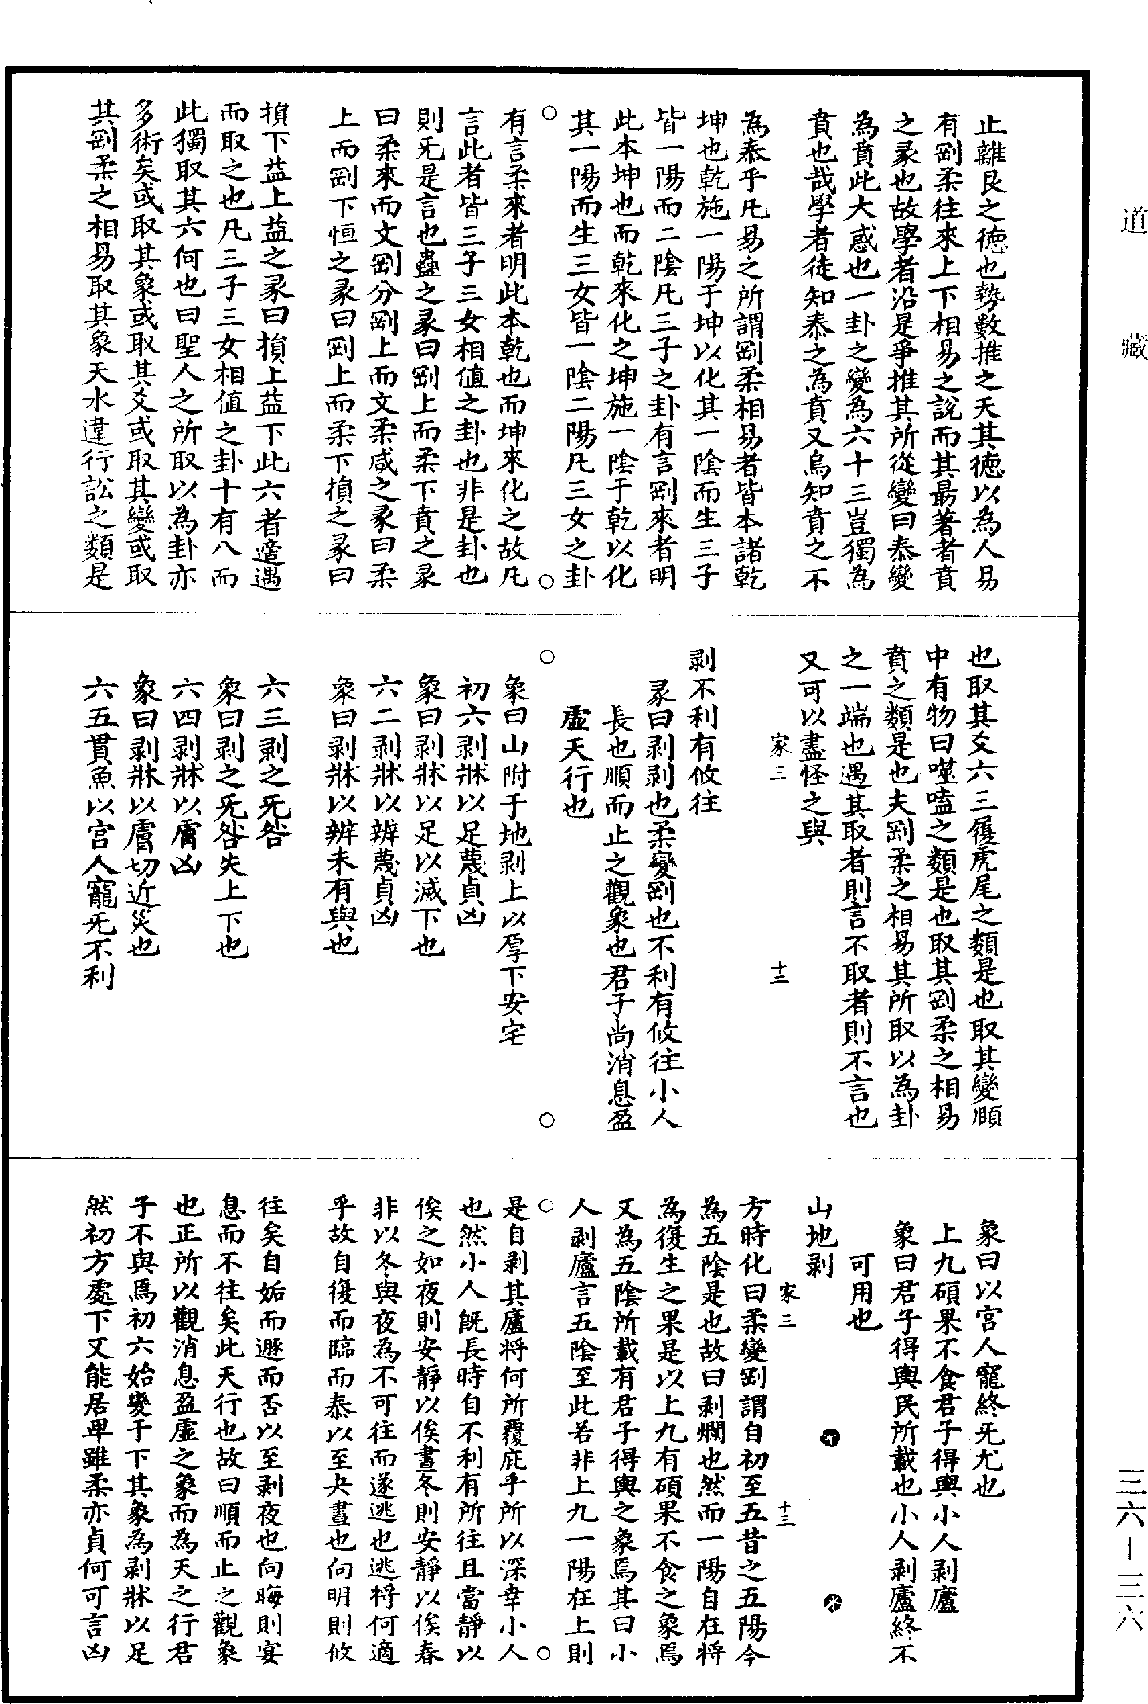 道藏
止離艮之德也勢數推之天其德以為人易
有剛柔往來上下相易之說而其最著者賁
之彖也故學者沿是爭推其所從變曰泰變
為賁此大惑也一卦之變為六十三豈獨為
賁也哉學者徒知泰之為賁又烏知賁之不
為泰乎凡易之所謂剛柔相易者皆本諸乾
坤也乾施一陽于坤以化其一陰而生三子
皆一陽而二陰凡三子之卦有言剛來者明
此本坤也而乾來化之坤施一陰于乾以化
其一陽而生三女皆一陰二陽凡三女之卦
有言柔來者明此本乾也而坤來化之故凡
言此者皆三子三女相值之卦也非是卦也
則旡是言也蠱之彖曰剛上而柔下賁之彖
曰柔來而文剛分剛上而文柔咸之彖曰柔
上而剛下恒之彖曰剛上而柔下損之彖曰
損下益上益之彖曰損上益下此六者適遇
而取之也凡三子三女相值之卦十有八而
此獨取其六何也曰聖人之所取以為卦亦
多術矣或取其象或取其爻或取其變或取
其剛柔之相易取其象天水違行訟之類是
也取其爻六三履虎尾之類是也取其變頤
中有物曰噬嗑之類是也取其剛柔之相易
賁之類是也夫剛柔之相易其所取以為卦
之一端也遇其取者則言不取者則不言也
又可以盡怪之與
家三 十三
剥不利有攸往
彖曰剥剥也柔變剛也不利有攸往小人
長也順而止之觀象也君子尚消息盈
虛天行也
象曰山附于地剥上以厚下安宅
初六剥牀以足蔑貞凶
象曰剥牀以足以滅下也
六二剥牀以辨蔑貞凶
象曰剥牀以辨未有與也
六三剥之旡咎
象曰剥之旡咎失上下也
六四剥牀以膚凶
象曰剥牀以膚切近災也
六五貫魚以宮人寵旡不利
象曰以宮人寵終旡尤也
上九碩果不食君子得輿小人剥廬
象曰君子得輿民所載也小人剥廬終不
可用也
山地剥
家三 十三
方時化曰柔變剛謂自初至五昔之五陽今
為五陰是也故曰剥爛也然而一陽自在將
為復生之果是以上九有碩果不食之象焉
又為五陰所載有君子得輿之象焉其曰小
人剥廬言五陰至此若非上九一陽在上則
是自剥其廬將何所覆庇乎所以深幸小人
也然小人旣長時自不利有所往且當靜以
俟之如夜則安靜以俟晝冬則安靜以俟春
非以冬與夜為不可往而遂逃也逃將何適
乎故自復而臨而泰以至夬晝也向明則攸
往矣自姤而遯而否以至剥夜也向晦則宴
息而不往矣此天行也故曰順而止之觀象
也正所以觀消息盈虛之象而為天之行君
子不與焉初六始變于下其象為剥牀以足
然初方處下又能居卑雖柔亦貞何可言凶
三六—三六